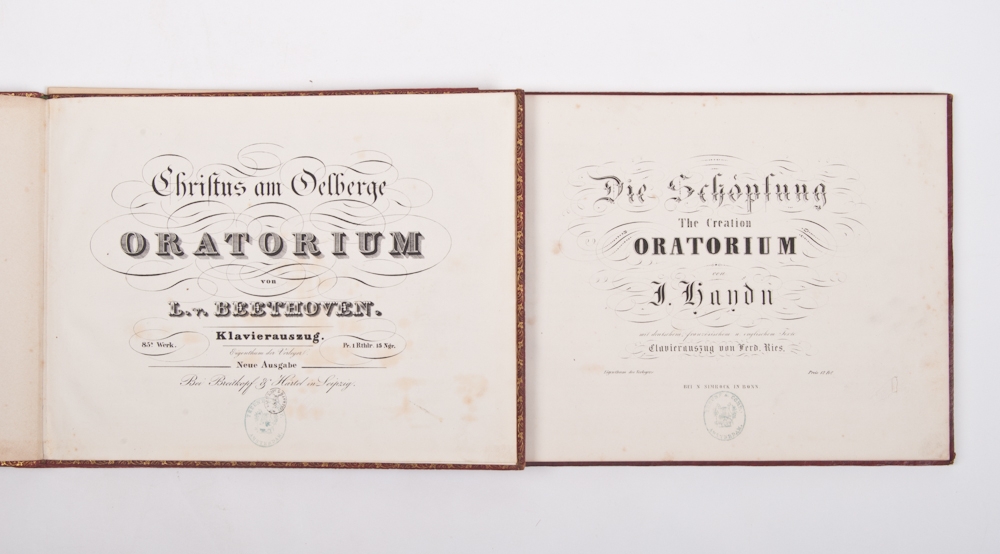 Christus am Oelberge
ORATORIUM
von
L. v. BEETHOVEN.
Klavierauszug.
85s Werk.
Pr. 1 Rthlr 15 Ngr.
Eigenthum der Verleger
Neue Ausgabe
Bei Breitkopf & Härtel in Leipzig.
Die Schöpfung
The Creation
ORATORIUM
von
J. Haydn
mit deutschem, französischem u. englischem Texte
Clavierauszug von Ferd. Ries.
Eigenthum des Verlegers
BEI N. SIMROCK IN BONN